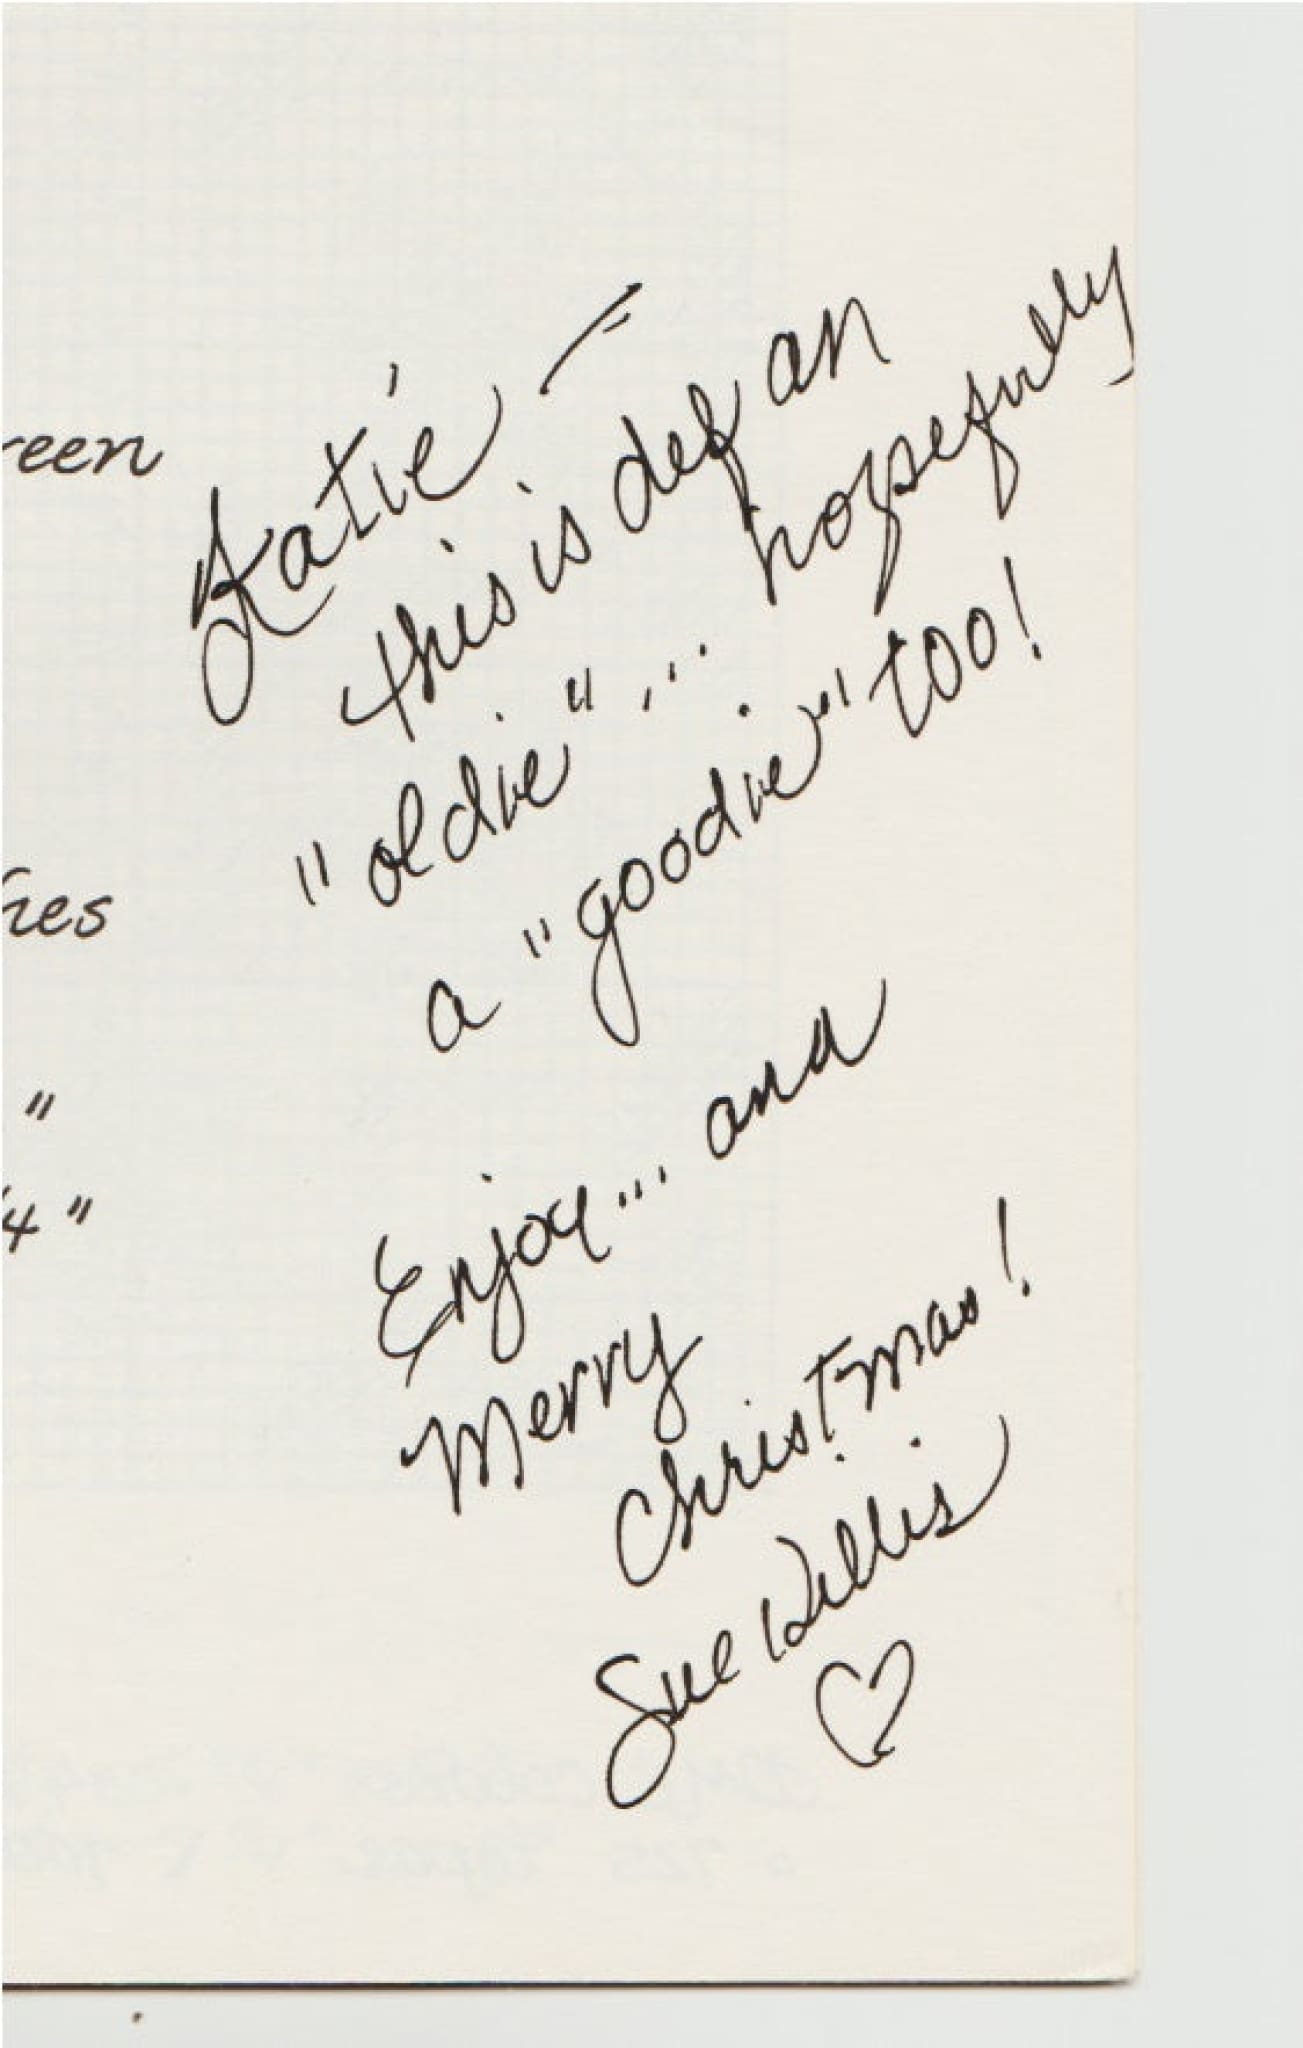 reen
hes
"
/4"
Katie —
this is def an
"oldie" ... hopefully
a "goodie" too!
Enjoy... and
Merry
Christmas!
Sue Willis